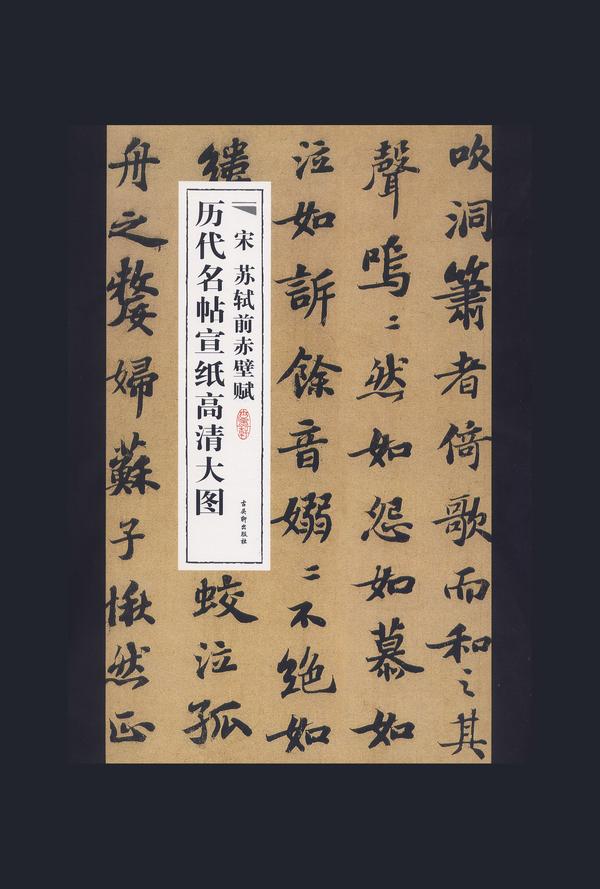 吹洞簫者倚歌而和之其
聲嗚〻然如怨如慕如
泣如訴餘音嫋〻不絕如
縷
蛟泣孤
舟之嫠婦蘇子愀然正
宋 苏轼前赤壁赋
历代名帖宣纸高清大图
古吴軒出版社